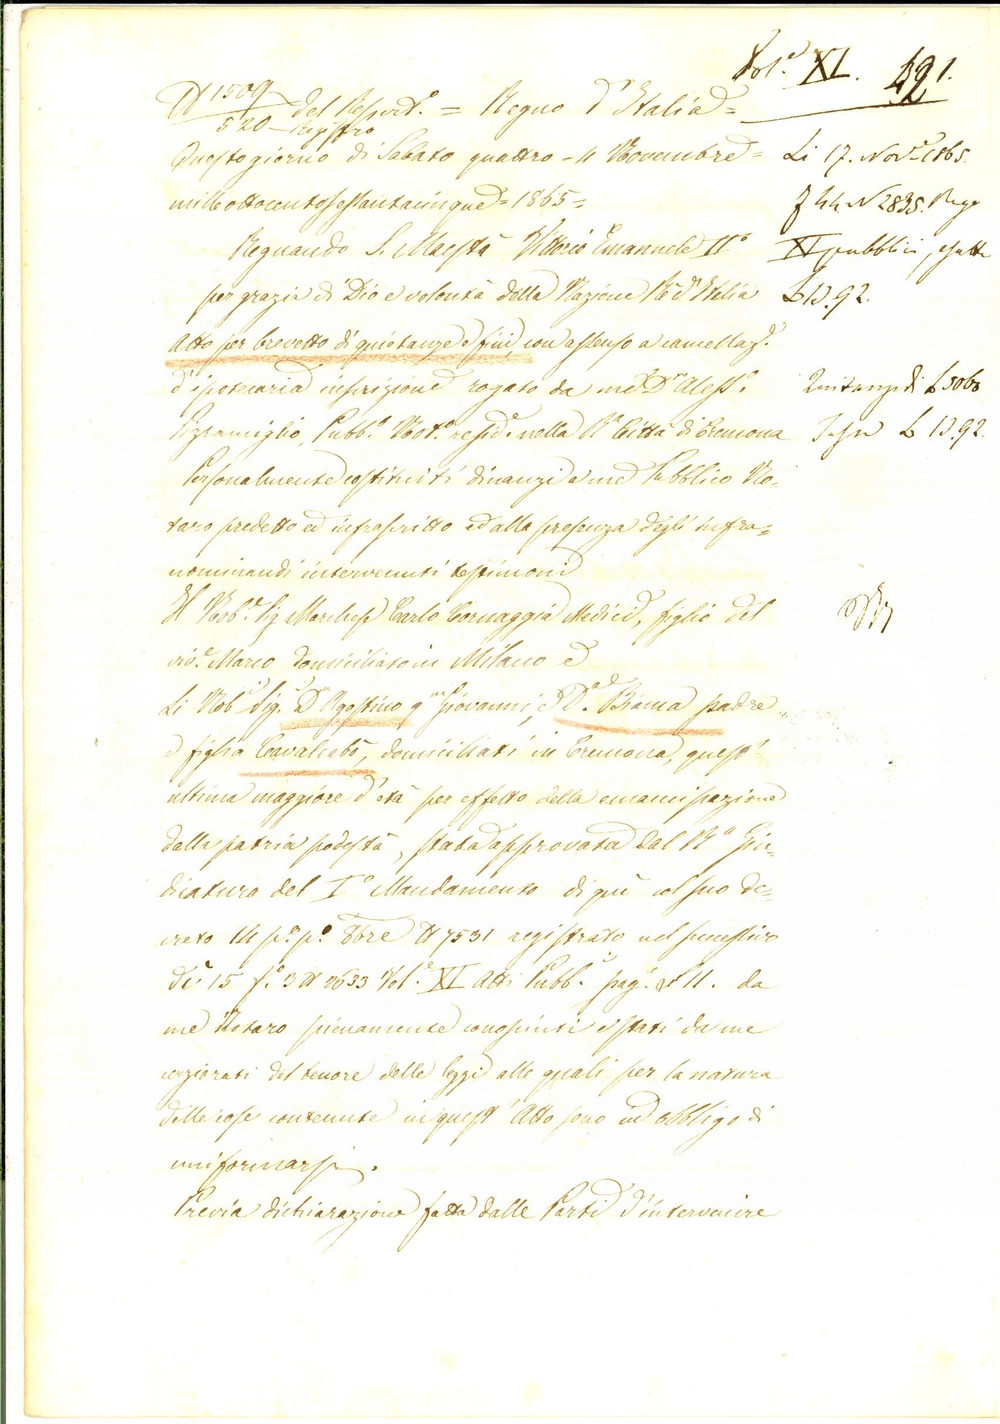 Vol.e XI. 421.
N 1509 del Repert.o = Regno d'Italia =
520 Registro
Questo giorno di Sabato quattro - 4 Novembre =
mille ottocento sessantacinque = 1865 =
Regnando S. Maestà Vittorio Emanuele II.o
per grazia di Dio e volontà della Nazione Re d'Italia
Atto per brevetto di quietanza e fini con assenso a cancellaz.e
d'ipotecaria inscrizione rogato da me D.r Aless.o
Pubb.o Not.o resid.e nella R.a Città di Cremona
Personalmente costituiti dinanzi a me Pubblico No-
taro predetto ed infrascritto ed alla presenza degli infra=
nominandi intervenuti testimoni
Il Nob.e Sig. Marchese Carlo Cornaggia Medici, figlio del
viv.e Marco domiciliato in Milano e
Li Nob.i Sig.i D.n Agostino q.m Giovanni, e D.a Bianca padre
e figlia Cavalcabò, domiciliati in Cremona, quest'
ultima maggiore d'età per effetto della emancipazione
dalla patria podestà, stata approvata dal R.a Giu-
dicatura del I.o Mandamento di qui col suo De-
creto 14 p.o p.o 8bre N 7531 registrato nel successivo
dì 15 f.o 3 N 2633 Vol.e XI Atti Pubb.i pag. L 11. da
me Notaro pienamente conosciuti e stati da me
cerziorati del tenore delle leggi alle quali per la natura
delle cose contenute in quest'Atto sono in obbligo di
uniformarsi.
Previa dichiarazione fatta dalle Parti d'intervenire
Li 17. Nov.e 1865.
f 44 N 2835. Rego
XI pubblici, esatte
L 10.92.
Quitanza di L 5060
Tassa L 10.92.